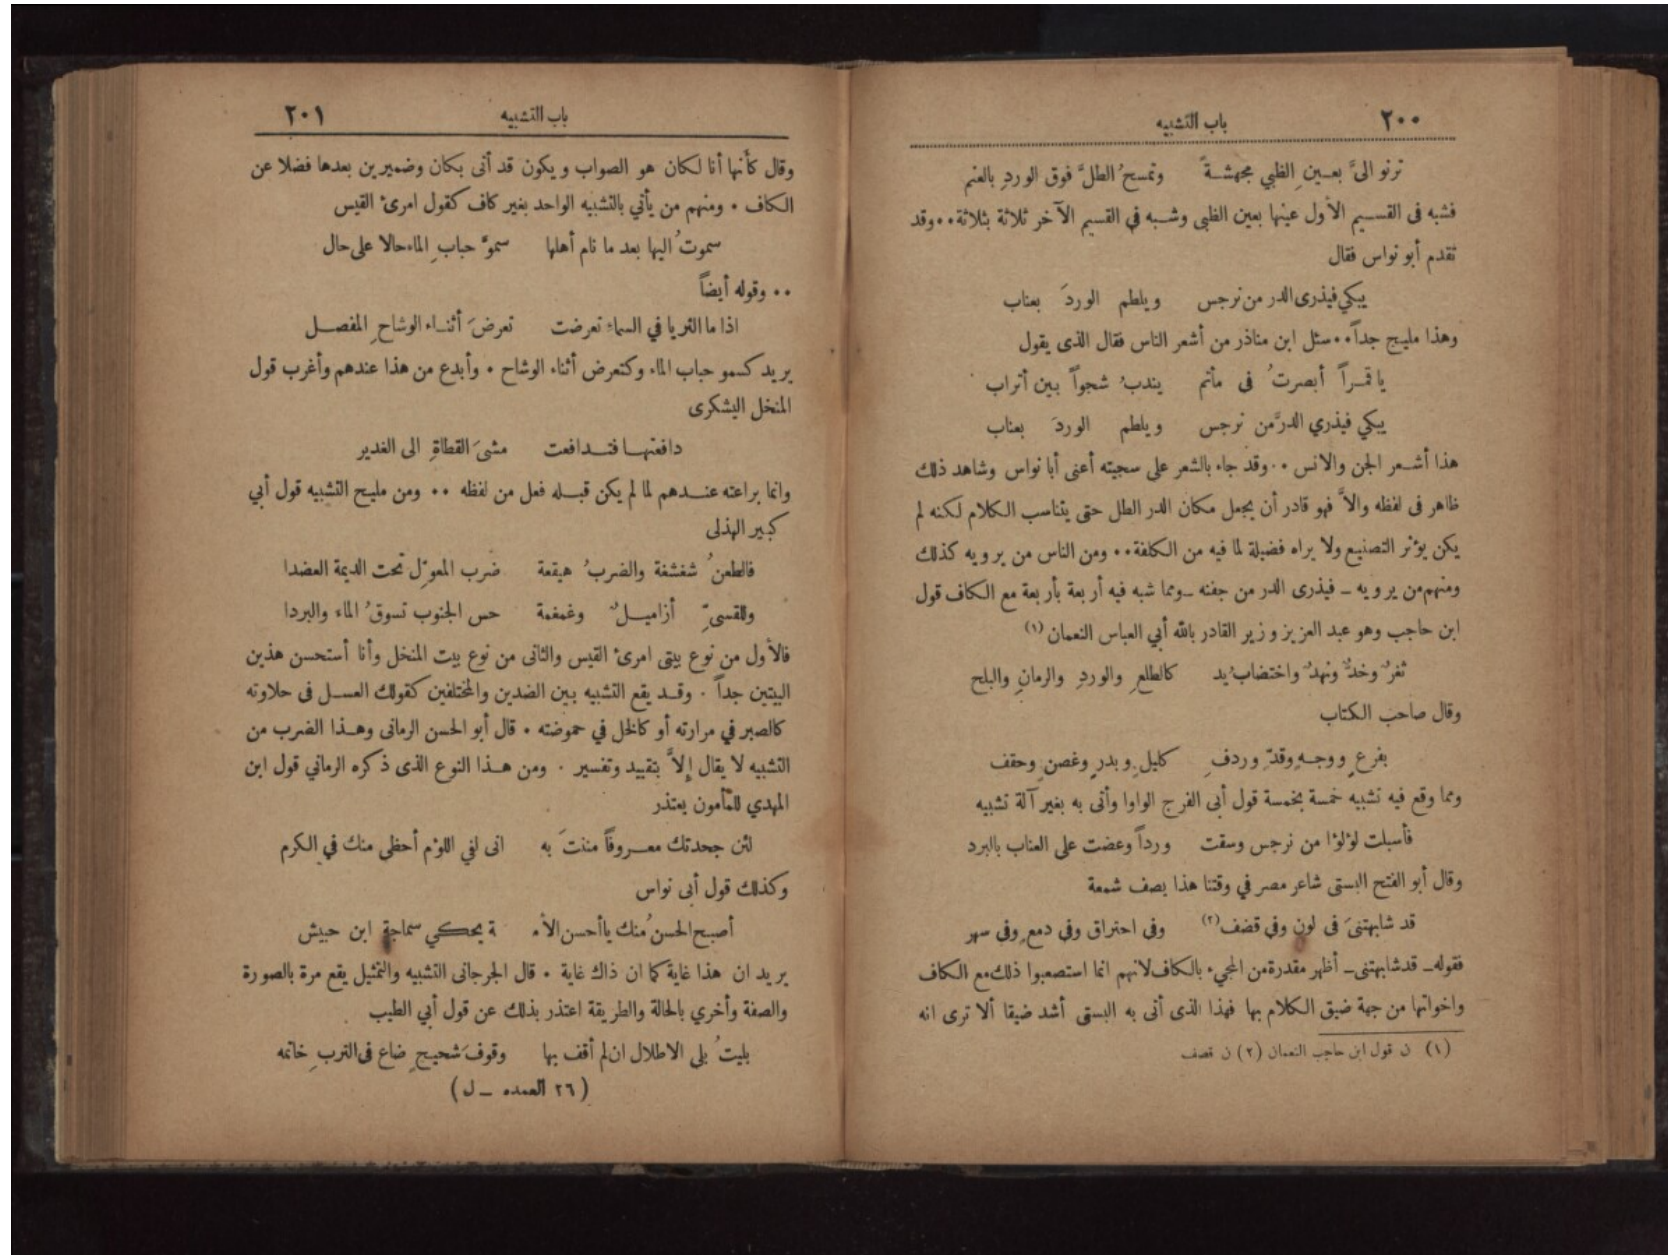 ٢٠٠
باب التشبيه
ترنو الىَّ بعـين ِالظبي مجهشـةً وتمسحُ الطلَّ فوق الوردِ بالعنم
فشبه فى القسـيم الأول عينها بعين الظبى وشـبه في القسيم الآخر ثلاثة بثلاثة٠٠وقد
تقدم أبو نواس فقال
يبكي فيذرى الدر من نرجس ويلطم الوردَ بعناب
وهذا مليح جداً٠٠سئل ابن مناذر من أشعر الناس فقال الذى يقول
يا قمـراً أبصرتُ فى مأتم يندبُ شجواً بـين أتراب
يبكي فيذري الدرَّمن نرجس ويلطم الوردَ بعناب
هذا أشـعر الجن والانس ٠٠وقد جاء بالشعر على سجيته أعنى أبا نواس وشاهد ذلك
ظاهر فى لفظه والاَّ فهو قادر أن يجعل مكان الدر الطل حتى يتناسب الكلام لكنه لم
يكن يؤثر التصنيع ولا يراه فضيلة لما فيه من الكلفة٠٠ ومن الناس من يرويه كذلك
ومنهم من يرويه ــ فيذرى الدر من جفنه ــ ومما شبه فيه أربعة بأربعة مع الكاف قول
ابن حاجب وهو عبد العزيز وزير القادر بالله أبي العباس النعمان (١)
ثغرٌ وخدٌّ ونهدٌ واختضاب ُيد كالطلعِ والوردِ والرمانِ والبلح
وقال صاحب الكتاب
بفرعٍ ووجـهٍ وقدّ ٍوردف ِ كليل ٍوبدرٍ وغصن ٍوحقف
ومما وقع فيه تشبيه خمسة بخمسة قول أبى الفرج الواوا وأتى به بغير آلة تشبيه
فأسبلت لؤلؤا من نرجس وسقت ورداً وعضت على العناب بالبرد
وقال أبو الفتح البستى شاعر مصر في وقتنا هذا يصف شمعة
قد شابهتنىَ فى لون وفي قضف(٢) وفى احتراق وفي دمع ٍوفي سهر
فقوله ــ قد شابهتنى ــ أظهر مقدرة من المجيء بالكاف لانهم انما استصعبوا ذلك مع الكاف
واخواتها من جهة ضيق الكلام بها فهذا الذى أتى به البستى أشد ضيقا ألا ترى انه
(١) ن قول ابن حاجب النعمان (٢) ن قصف
باب التشبيه
٢٠١
وقال كأنها أنا لكان هو الصواب ويكون قد أتى بكان وضميرين بعدها فضلا عن
الكاف ٠ ومنهم من يأتي بالتشبيه الواحد بغير كاف كقول امرئ القيس
سموتُ اليها بعد ما نام أهلها سموَّ حبابِ الماء حالا على حال
٠٠ وقوله أيضاً
اذا ما الثريا في السماءِ تعرضت تعرضَ أثنـاء الوشاح ِالمفصـل
يريد كسمو حباب الماء وكتعرض أثناء الوشاح ٠ وأبدع من هذا عندهم وأغرب قول
المنخل اليشكرى
دافعتهـا فتـدافعت مشىَ القطاةِ الى الغدير
وانما براعته عنـدهم لما لم يكن قبـله فعل من لفظه ٠٠ ومن مليح التشبيه قول أبي
كبير الهذلى
فالطعنُ شغشغة والضربُ هيقعة ضرب المعوّل تحت الديمة العضدا
وللقسىِّ أزاميـلٌ وغمغمة حس الجنوب تسوقُ الماء والبردا
فالأول من نوع بيتى امرئ القيس والثانى من نوع بيت المنخل وأنا أستحسن هذين
البيتين جداً ٠ وقـد يقع التشبيه بـين الضدين والمختلفين كقولك العسـل فى حلاوته
كالصبر في مرارته أو كالخل في حموضته ٠ قال أبو الحسن الرمانى وهـذا الضرب من
التشبيه لا يقال إلاَّ بتقييد وتفسير ٠ ومن هـذا النوع الذى ذكره الرماني قول ابن
المهدي للمأمون يعتذر
لئن جحدتك معـروفاً مننتَ به انى لفي اللؤم أحظى منك في الكرم
وكذلك قول أبى نواس
أصبح الحسن ُمنك يا أحسن الأمـ ـة يحكي سماجة ابن حبيش
يريد ان هذا غاية كما ان ذاك غاية ٠ قال الجرجانى التشبيه والتمثيل يقع مرة بالصورة
والصفة وأخري بالحالة والطريقة اعتذر بذلك عن قول أبي الطيب
بليتُ بلى الاطلال ان لم أقف بها وقوفَ شحيح ٍضاع فى الترب ِخاتمه
(٢٦ العمده ــ ل)